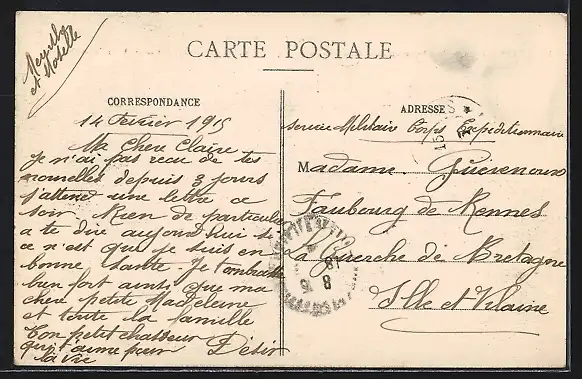 CARTE POSTALE
CORRESPONDANCE
ADRESSE
14 Fevrier 1915
Ma Chere Claire
Je n'ai pas recu de tes
nouvelles depuis 3 jours
j'attend une lettre ce
soir. Rien de particulier
a te dire aujourd'hui si
ce n'est que je suis en
bonne sante. Je t'embrasse
bien fort ainsi que ma
chere petite Madeleine
et toute la famille
Ton petit chasseur
qui t'aime pour
la vie
Désir
Service Militair Corps Expeditionnaire
Madame
Faubourg de Rennes
La Guerche de Bretagne
Ille et Vilaine